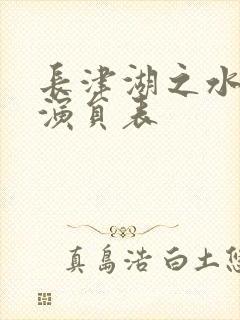 長津湖之水
演員表
真島浩 白土悠